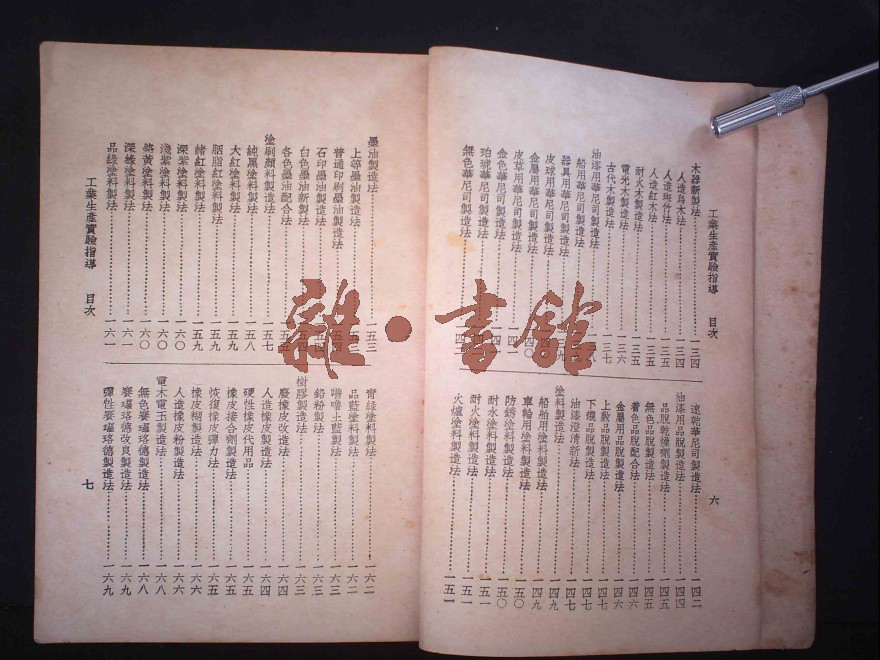 工業生產實驗指導 目次
六
木器新製法 一三四
人造烏木法 一三四
人造斑竹法 一三五
人造紅木法 一三五
耐火木製造法 一三五
電光木製造法 一三六
古代木製造法 一三七
油漆用華尼司製造法
船用華尼司製造法
器具用華尼司製造法
皮球用華尼司製造法
金屬用華尼司製造法
皮草用華尼司製造法
金色華尼司製造法
珀琥華尼司製造法
無色華尼司製造法
速乾華尼司製造法 一四二
油漆用品脫製造法 一四四
品脫乾燥喇製造法 一四四
無色品脫製造法 一四五
着色品脫配合法 一四六
金屬用品脫製造法 一四六
上級品脫製造法 一四七
下級品脫製造法 一四七
油漆澄清新法 一四七
塗料製造法 一四九
船舶用塗料製造法 一四九
車輪用塗料製造法 一五〇
防銹塗料製造法 一五〇
耐水塗料製造法 一五一
耐火塗料製造法 一五一
火爐塗料製造法 一五一
墨油製造法 一五三
上等墨油製造法
普通印刷墨油製造法
石印墨油製造法
白色墨油新製法
各色墨油配合法
塗刷顏料製造法 一五七
純黑塗料製造法 一五八
大紅塗料製造法 一五九
胭脂紅塗料製法 一五九
赭紅塗料製造法 一五九
深紫塗料製造法 一六〇
淺紫塗料製造法 一六〇
絡黃塗料製造法 一六〇
深綠塗料製造法 一六一
品綠塗料製造法 一六一
青綠塗料製法 一六二
品藍塗料製法 一六二
嚕嚕士藍製法 一六三
鉛粉製法 一六三
樹膠製造法 一六三
廢橡皮改造法 一六四
人造橡皮製造法 一六四
硬性橡皮代用品 一六五
橡皮接合劑製造法 一六五
恢復橡皮彈力法 一六五
橡皮糊製法 一六六
人造橡皮粉製造法 一六六
電木電玉製造法 一六八
無色賽璐珞德製造法 一六八
賽璐珞德改良製造法 一六九
彈性賽璐珞德製造法 一六九
工業生產實驗指導 目次
七
雜·書館